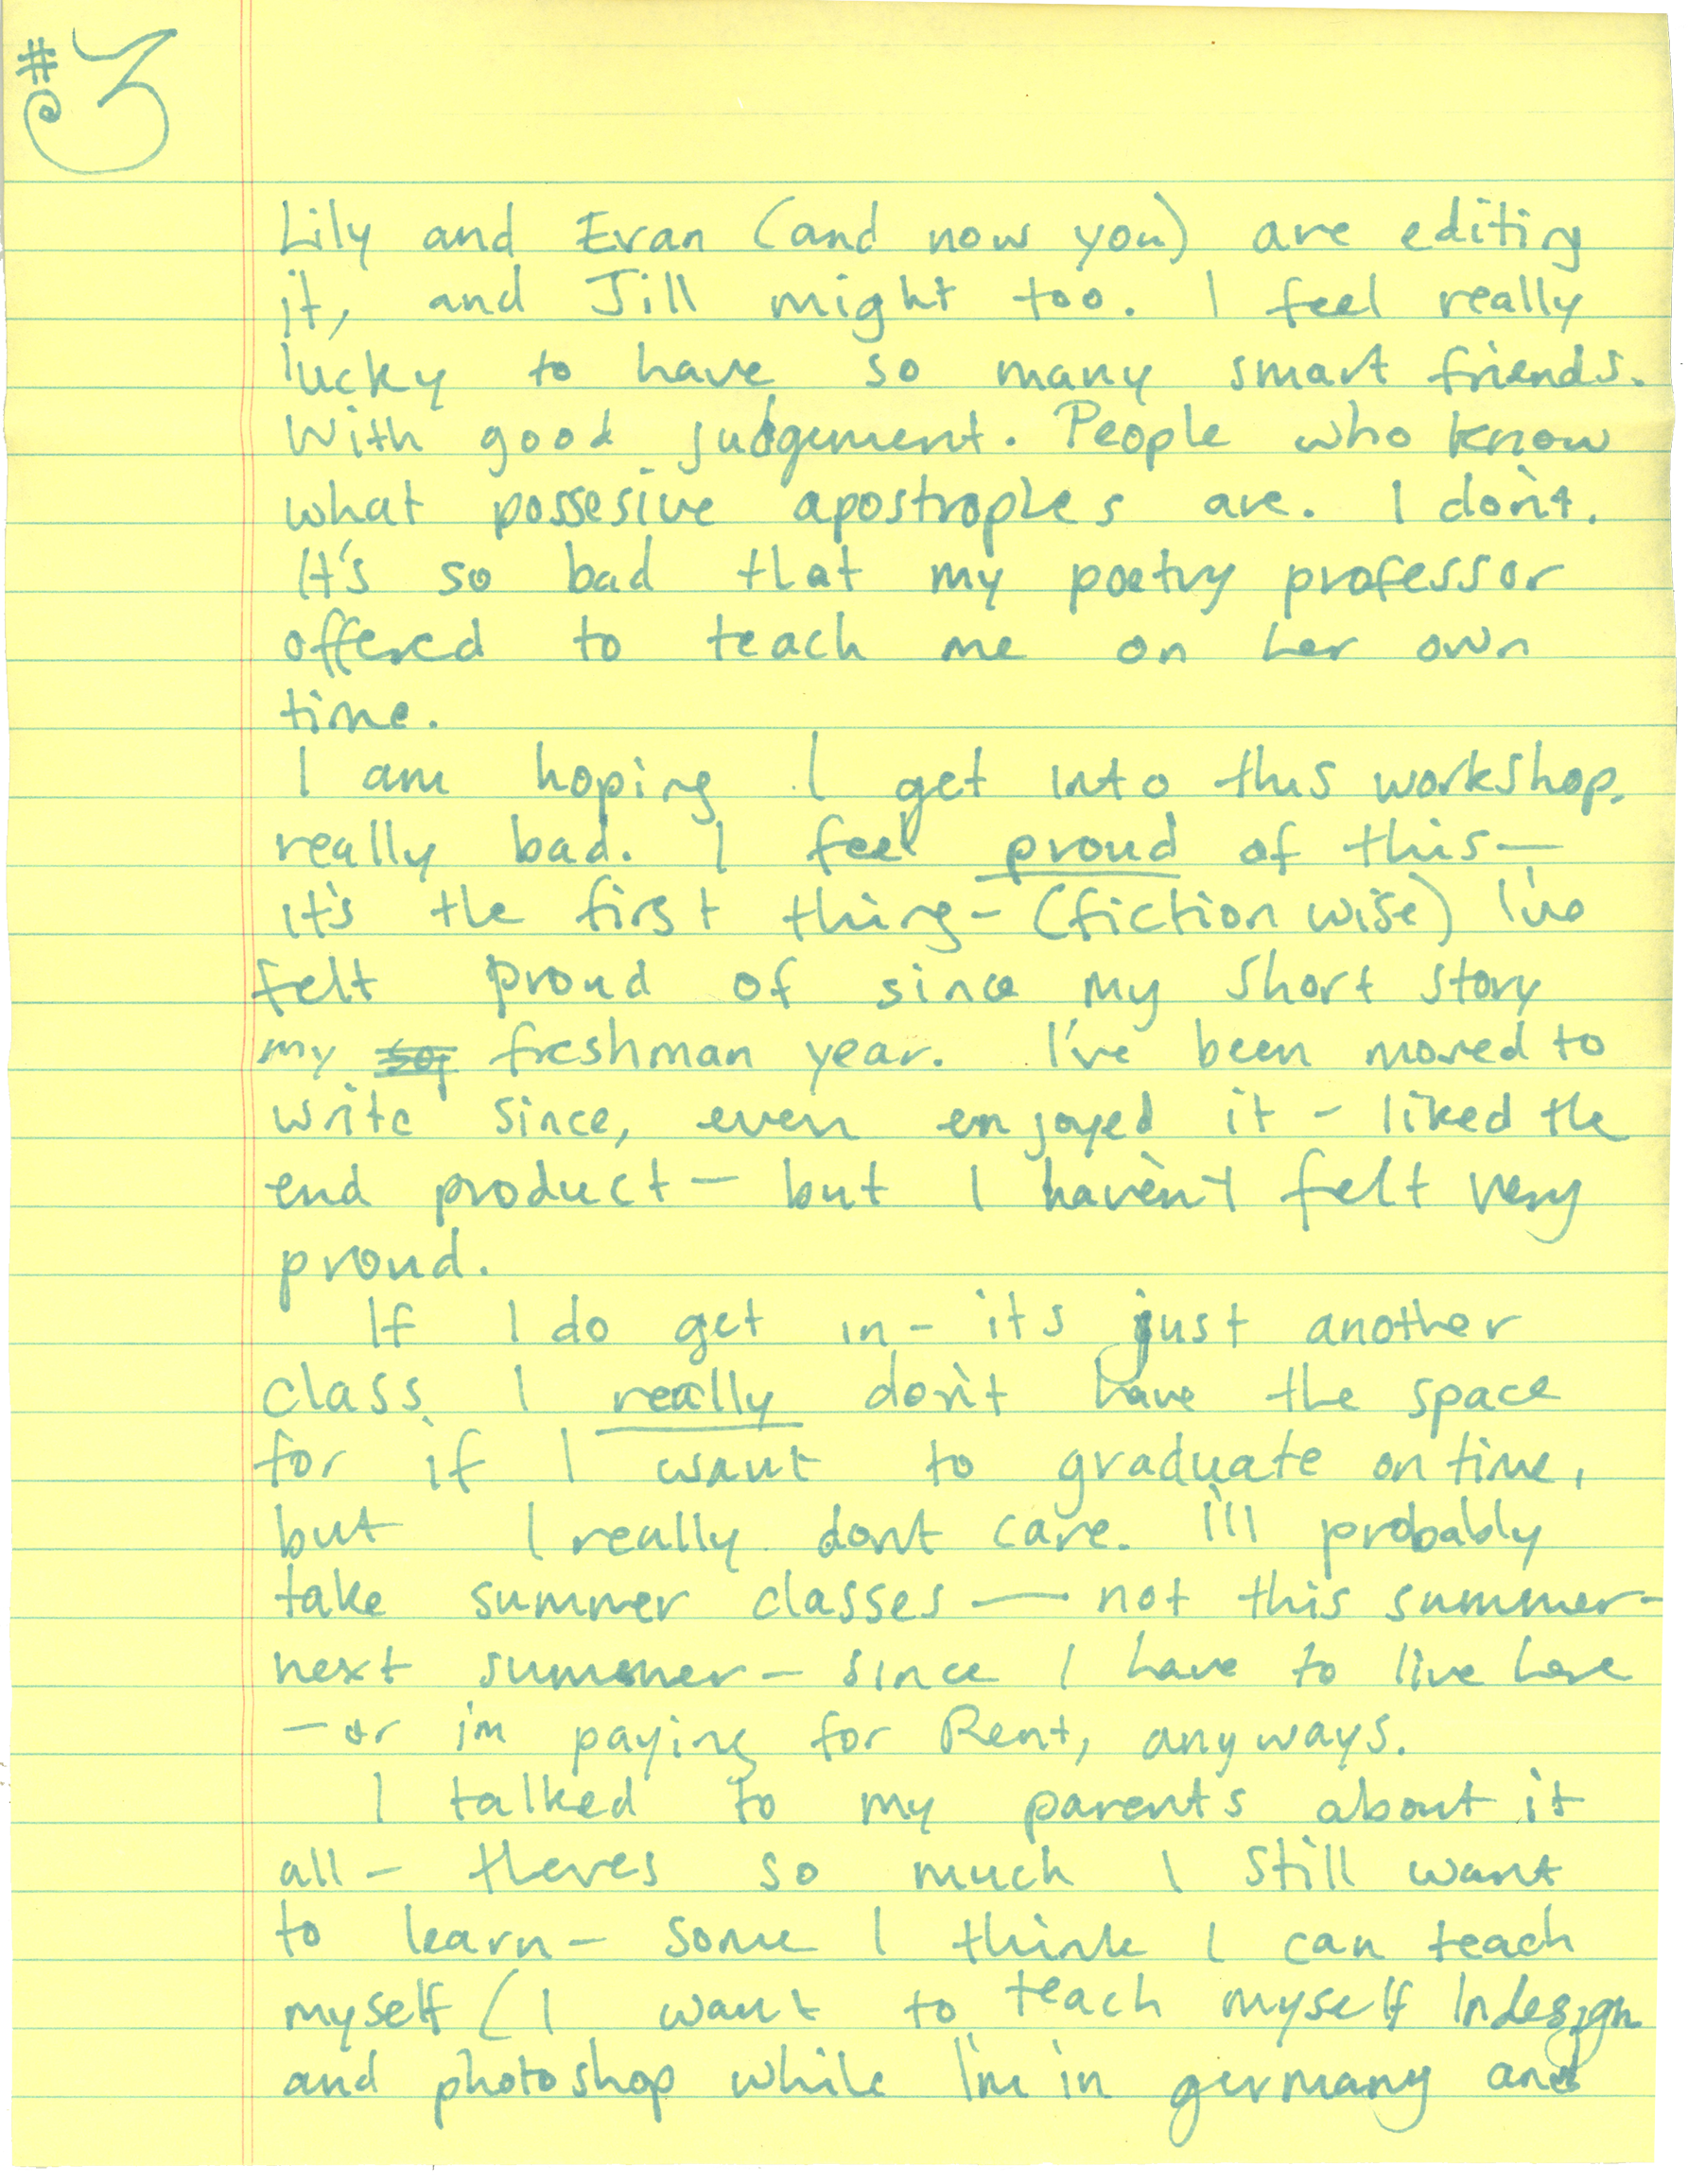 #3
Lily and Evan (and now you) are editing
it, and Jill might too. I feel really
lucky to have so many smart friends.
With good judgement. People who know
what possesive apostrophes are. I don't.
It's so bad that my poetry professor
offered to teach me on her own
time.
I am hoping I get into this workshop.
really bad. I feel proud of this—
it's the first thing- (fiction wise) I've
felt proud of since my short story
my freshman year. I've been moved to
write since, even enjoyed it - liked the
end product — but I haven't felt very
proud.
If I do get in - it's just another
class I really don't have the space
for if I want to graduate on time,
but I really dont care. I'll probably
take summer classes — not this summer-
next summer - since I have to live here
— or i'm paying for Rent, anyways.
I talked to my parents about it
all - theres so much I still want
to learn - some I think I can teach
myself (I want to teach myself Indesign
and photoshop while I'm in germany and